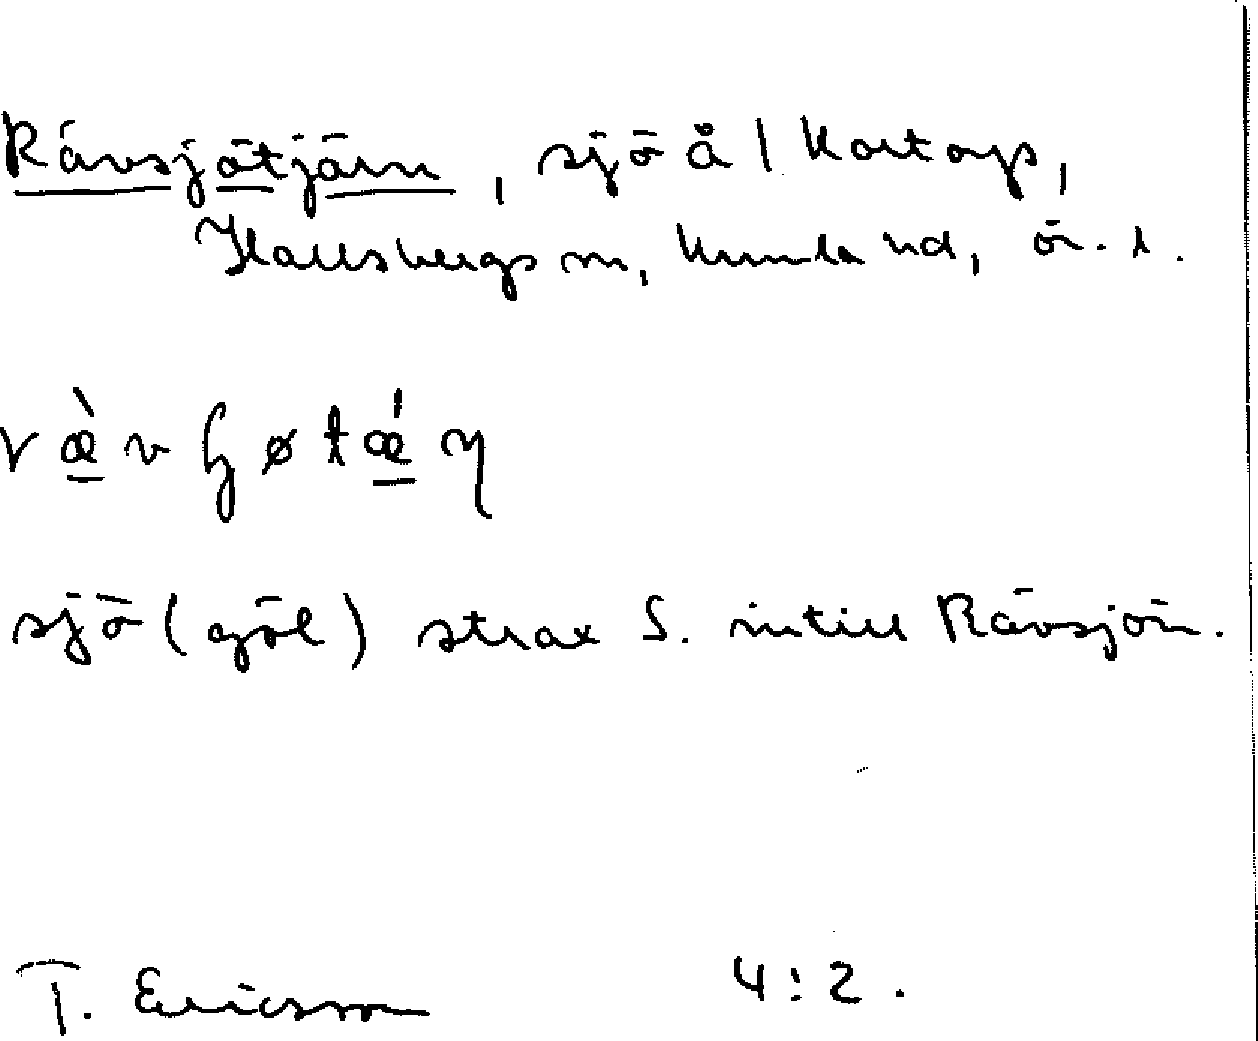 Rävsjötjärn, sjö å / Kortorp,
Hallsbergs sn, Kumla hd, ör. l.
sjö (göl) strax S. intill Rävsjön.
T. Ericsson 4:2.